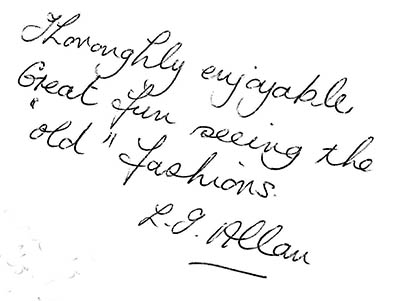 Thoroughly enjoyable,
Great fun seeing the
"old" fashions.
L. G. Allan